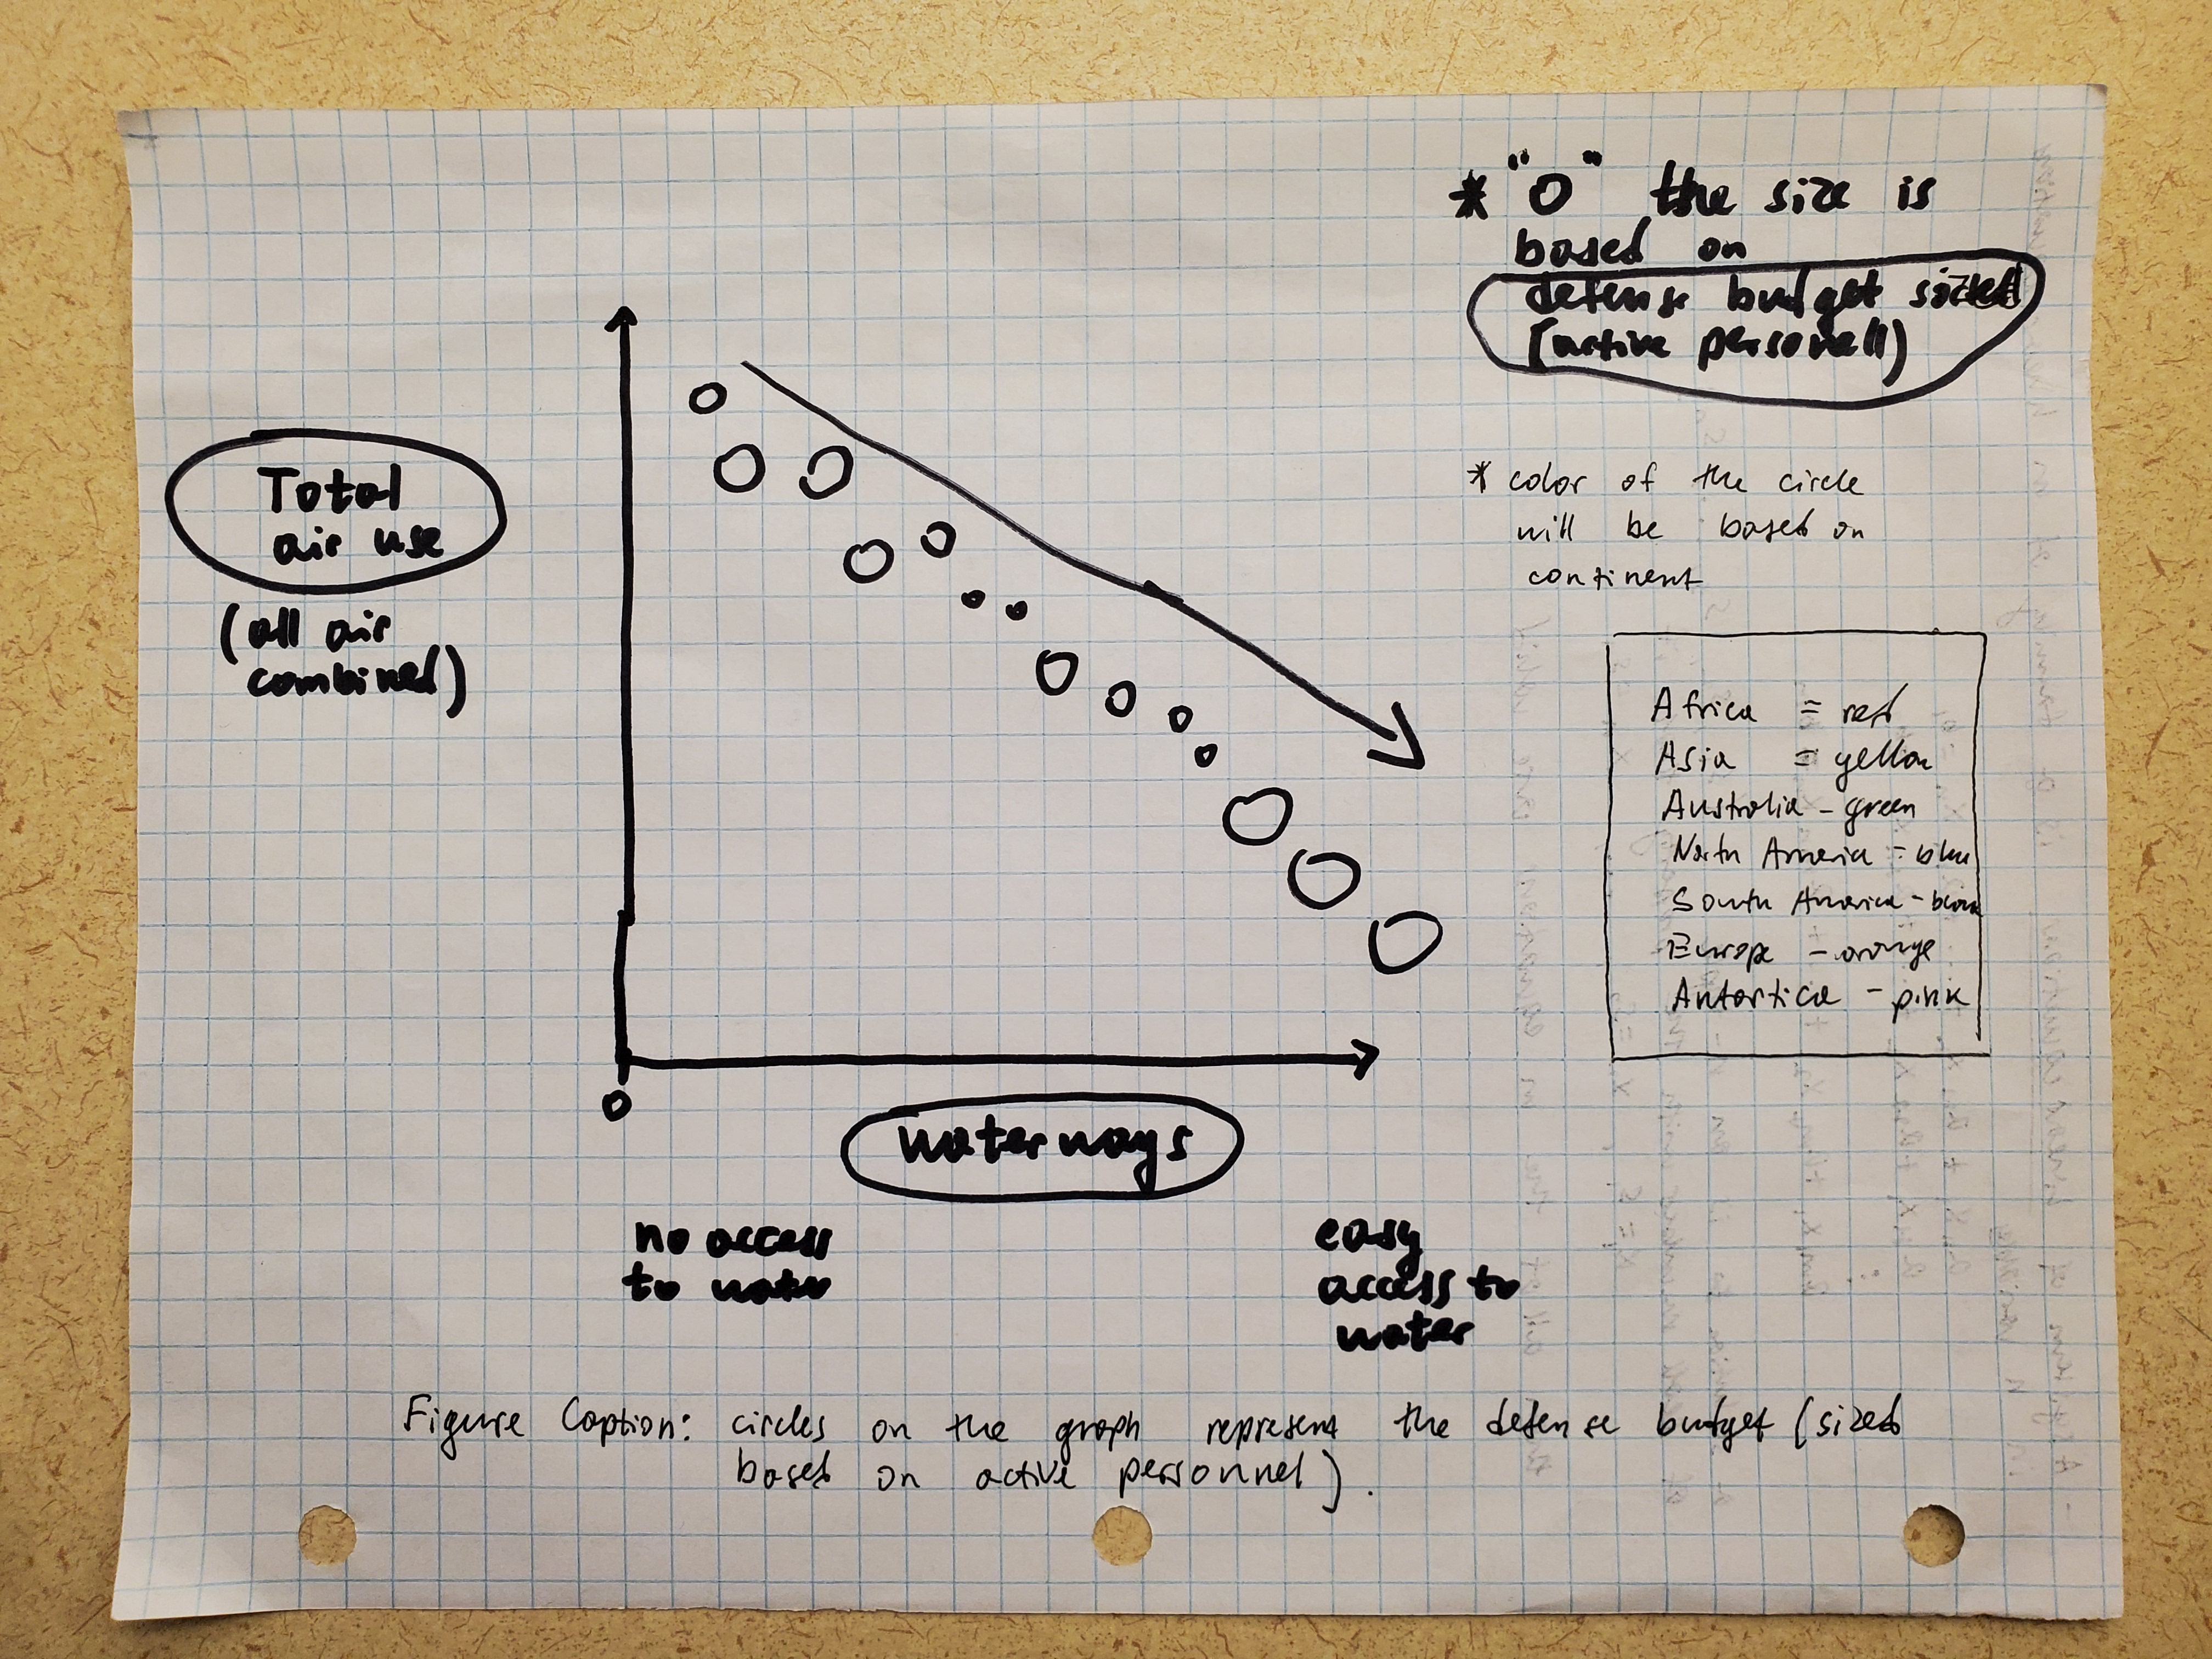 * "O" the size is
based on
defense budget sized
(active personell)
Total
air use
(all air
combined)
* color of the circle
will be based on
continent
Africa = red
Asia = yellow
Australia - green
North America - blue
South America - brown
Europe - orange
Antartica - pink
O
waterways
no access
to water
easy
access to
water
Figure Caption: circles on the graph represent the defense budget (sized
based on active personnel).